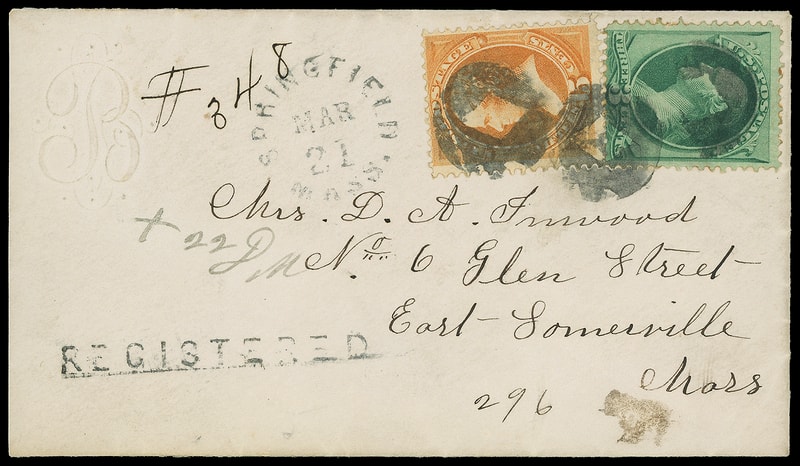 # 348
SPRINGFIELD MASS.
MAR
21
U.S. POSTAGE
THREE 3 CENTS
Mrs. D. A. Inwood
+ 22 PM
No 6 Glen Street
East Somerville
Mass
REGISTERED
296
B